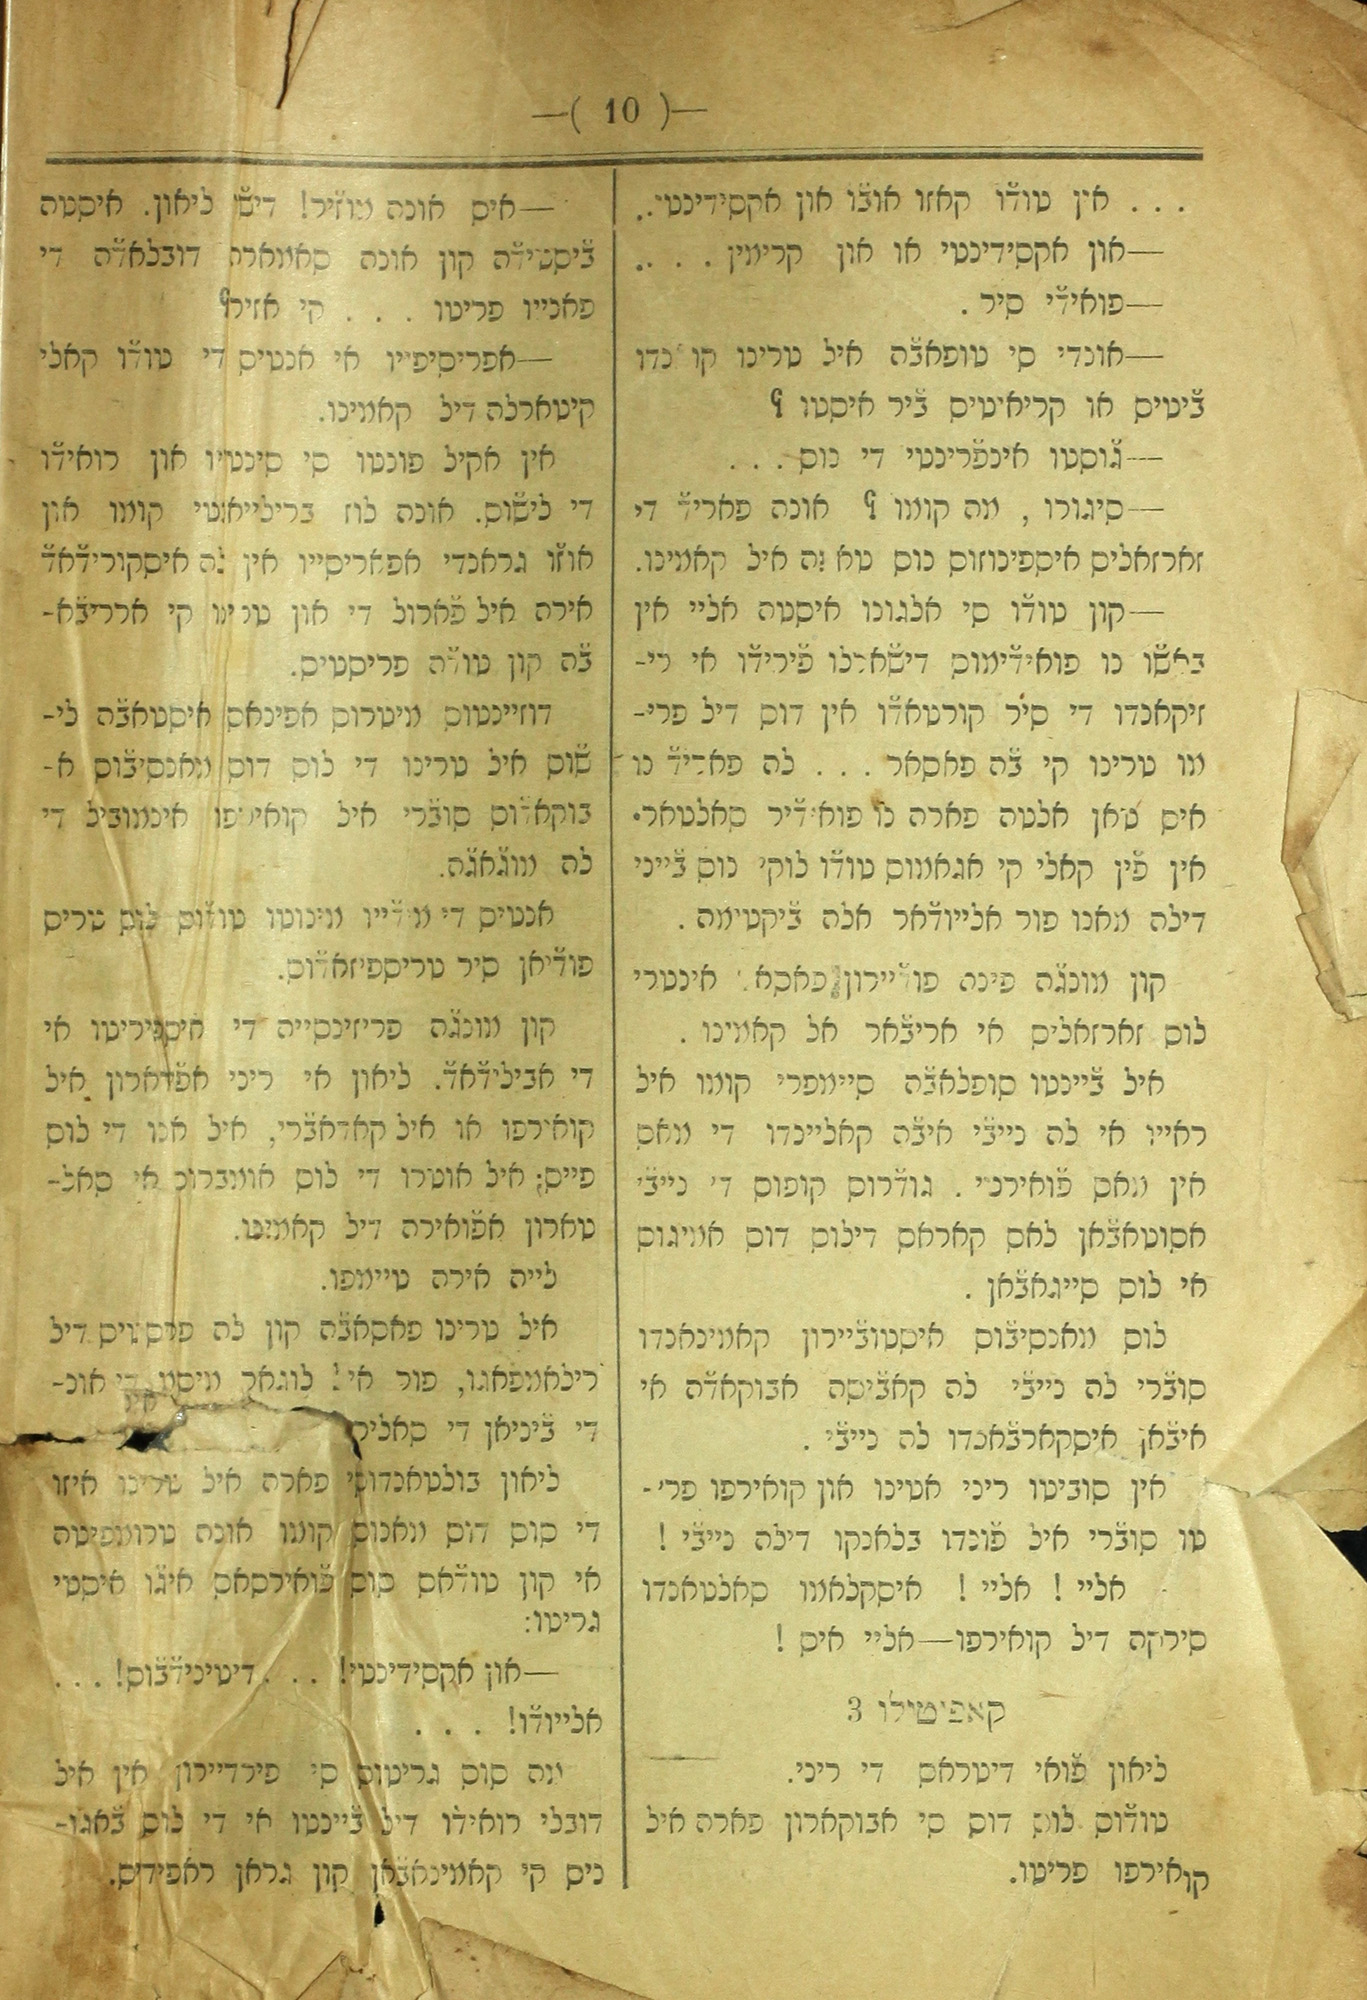 —( 10 )—
. . . אין טודﬞו קאזו אובﬞו און אקסידינטי..
—און אקסידינטי או און קרימין . . ..
—פואידﬞי סיר .
—אונדי סי טופאבﬞה איל טרינו קו נדו
בﬞיטיס או קריאיטיס בﬞיר איסטו ?
—גﬞוסטו אינפﬞרינטי די נוס . . .
—סיגורו , מה קומו ? אונה פאריד די
זארזאליס איספינוזוס נוס טא ה איל קאמינו.
—קון טודﬞו סי אלגונו איסטה אליי אין
באשﬞו נו פואידﬞימוס דישﬞארלו פﬞירידﬞו אי רי-
זיקאנדו די סיר קורטאדﬞו אין דוס דיל פרי-
מו טרינו קי בﬞה פאסאר . . . לה פאריד נו
איס טאן אלטה פארה נו פואידﬞיר סאלטאר.
אין פﬞין קאלי קי אגאמוס טודﬞו לוקי נוס בﬞייני
דילה מאנו פור אלייודﬞאר אלה בﬞיקטימה .
קון מונגﬞה פינה פודﬞיירון פאסאר אינטרי
לוס זארזאליס אי אריבﬞאר אל קאמינו .
איל בﬞיינטו סופלאבﬞה סיימפרי קומו איל
ראייו אי לה נייבﬞי איבﬞה קאלייינדו די מאס
אין מאס פﬞואירטי . גודﬞרוס קופוס די נייבﬞי
אסוטאבﬞאן לאס קאראס דילוס דוס אמיגוס
אי לוס סייגאבﬞאן .
לוס מאנסיבﬞוס איסטובﬞיירון קאמינאנדו
סובﬞרי לה נייבﬞי לה קאבﬞיסה אבוקאדﬞה אי
איבﬞאן איסקארבﬞאנדו לה נייבﬞי .
אין סוביטו ריני אטינו און קואירפו פרי-
טו סובﬞרי איל פﬞונדו בלאנקו דילה נייבﬞי !
אליי ! אליי ! איסקלאמו סאלטאנדו
סירקה דיל קואירפו—אליי איס !
קאפיטילו 3
ליאון פﬞואי דיטראס די ריני.
טודﬞוס לוס דוס סי אבוקארון פארה איל
קואירפו פריטו.
—איס אונה מוזﬞיר! דישﬞי ליאון. איסטה
בﬞיסטידﬞה קון אונה סאמארה דובלאדﬞה די
פאנייו פריטו . . . קי אזיר?
—אפריסיפייו אי אנטיס די טודﬞו קאלי
קיטארלה דיל קאמינו.
אין אקיל פונטו סי סינטיו און רואידﬞו
די לישﬞוס. אונה לוז ברילייאנטי קומו און
אוזﬞו גראנדי אפאריסייו אין לה איסקורידﬞאדﬞ
אירה איל פﬞארול די און טרינו קי ארריבﬞא-
בﬞה קון טודﬞה פריסטיס.
דוזיינטוס מיטרוס אפינאס איסטאבﬞה לי-
שﬞוס איל טרינו די לוס דוס מאנסיבﬞוס א-
בוקאדﬞוס סובﬞרי איל קואירפו אינמוביל די
לה מוגﬞאגﬞה.
אנטיס די מידﬞייו מינוטו טודﬞוס לוס טריס
פודﬞיאן סיר טריספיזאדﬞוס.
קון מונגﬞה פריזינסייה די איספיריטו אי
די אבילידﬞאדﬞ. ליאון אי ריני אפﬞירארון איל
קואירפו או איל קאדאבﬞרי, איל אונו די לוס
פייס; איל אוטרו די לוס אומברוס אי סאל-
טארון אפﬞואירה דיל קאמינו.
לייה אירה טיימפו.
איל טרינו פאסאבﬞה קון לה פריסטיס דיל
רילאמפאגו, פור איל לוגאר מיסמו די אונ-
די בﬞיניאן די סאליר
ליאון בולטאנדוסי פארה איל טרינו איזו
די סוס דוס מאנוס קומו אונה טרומפיטה
אי קון טודﬞאס סוס פﬞואירסאס איגﬞו איסטי
גריטו:
—און אקסידינטי! . . . דיטינידﬞבﬞוס! . . .
אלייודﬞו! . . .
מה סוס גריטוס סי פירדיירון אין איל
דובלי רואידו דיל בﬞיינטו אי די לוס בﬞאגו-
ניס קי קאמינאבﬞאן קון גראן ראפידיס.